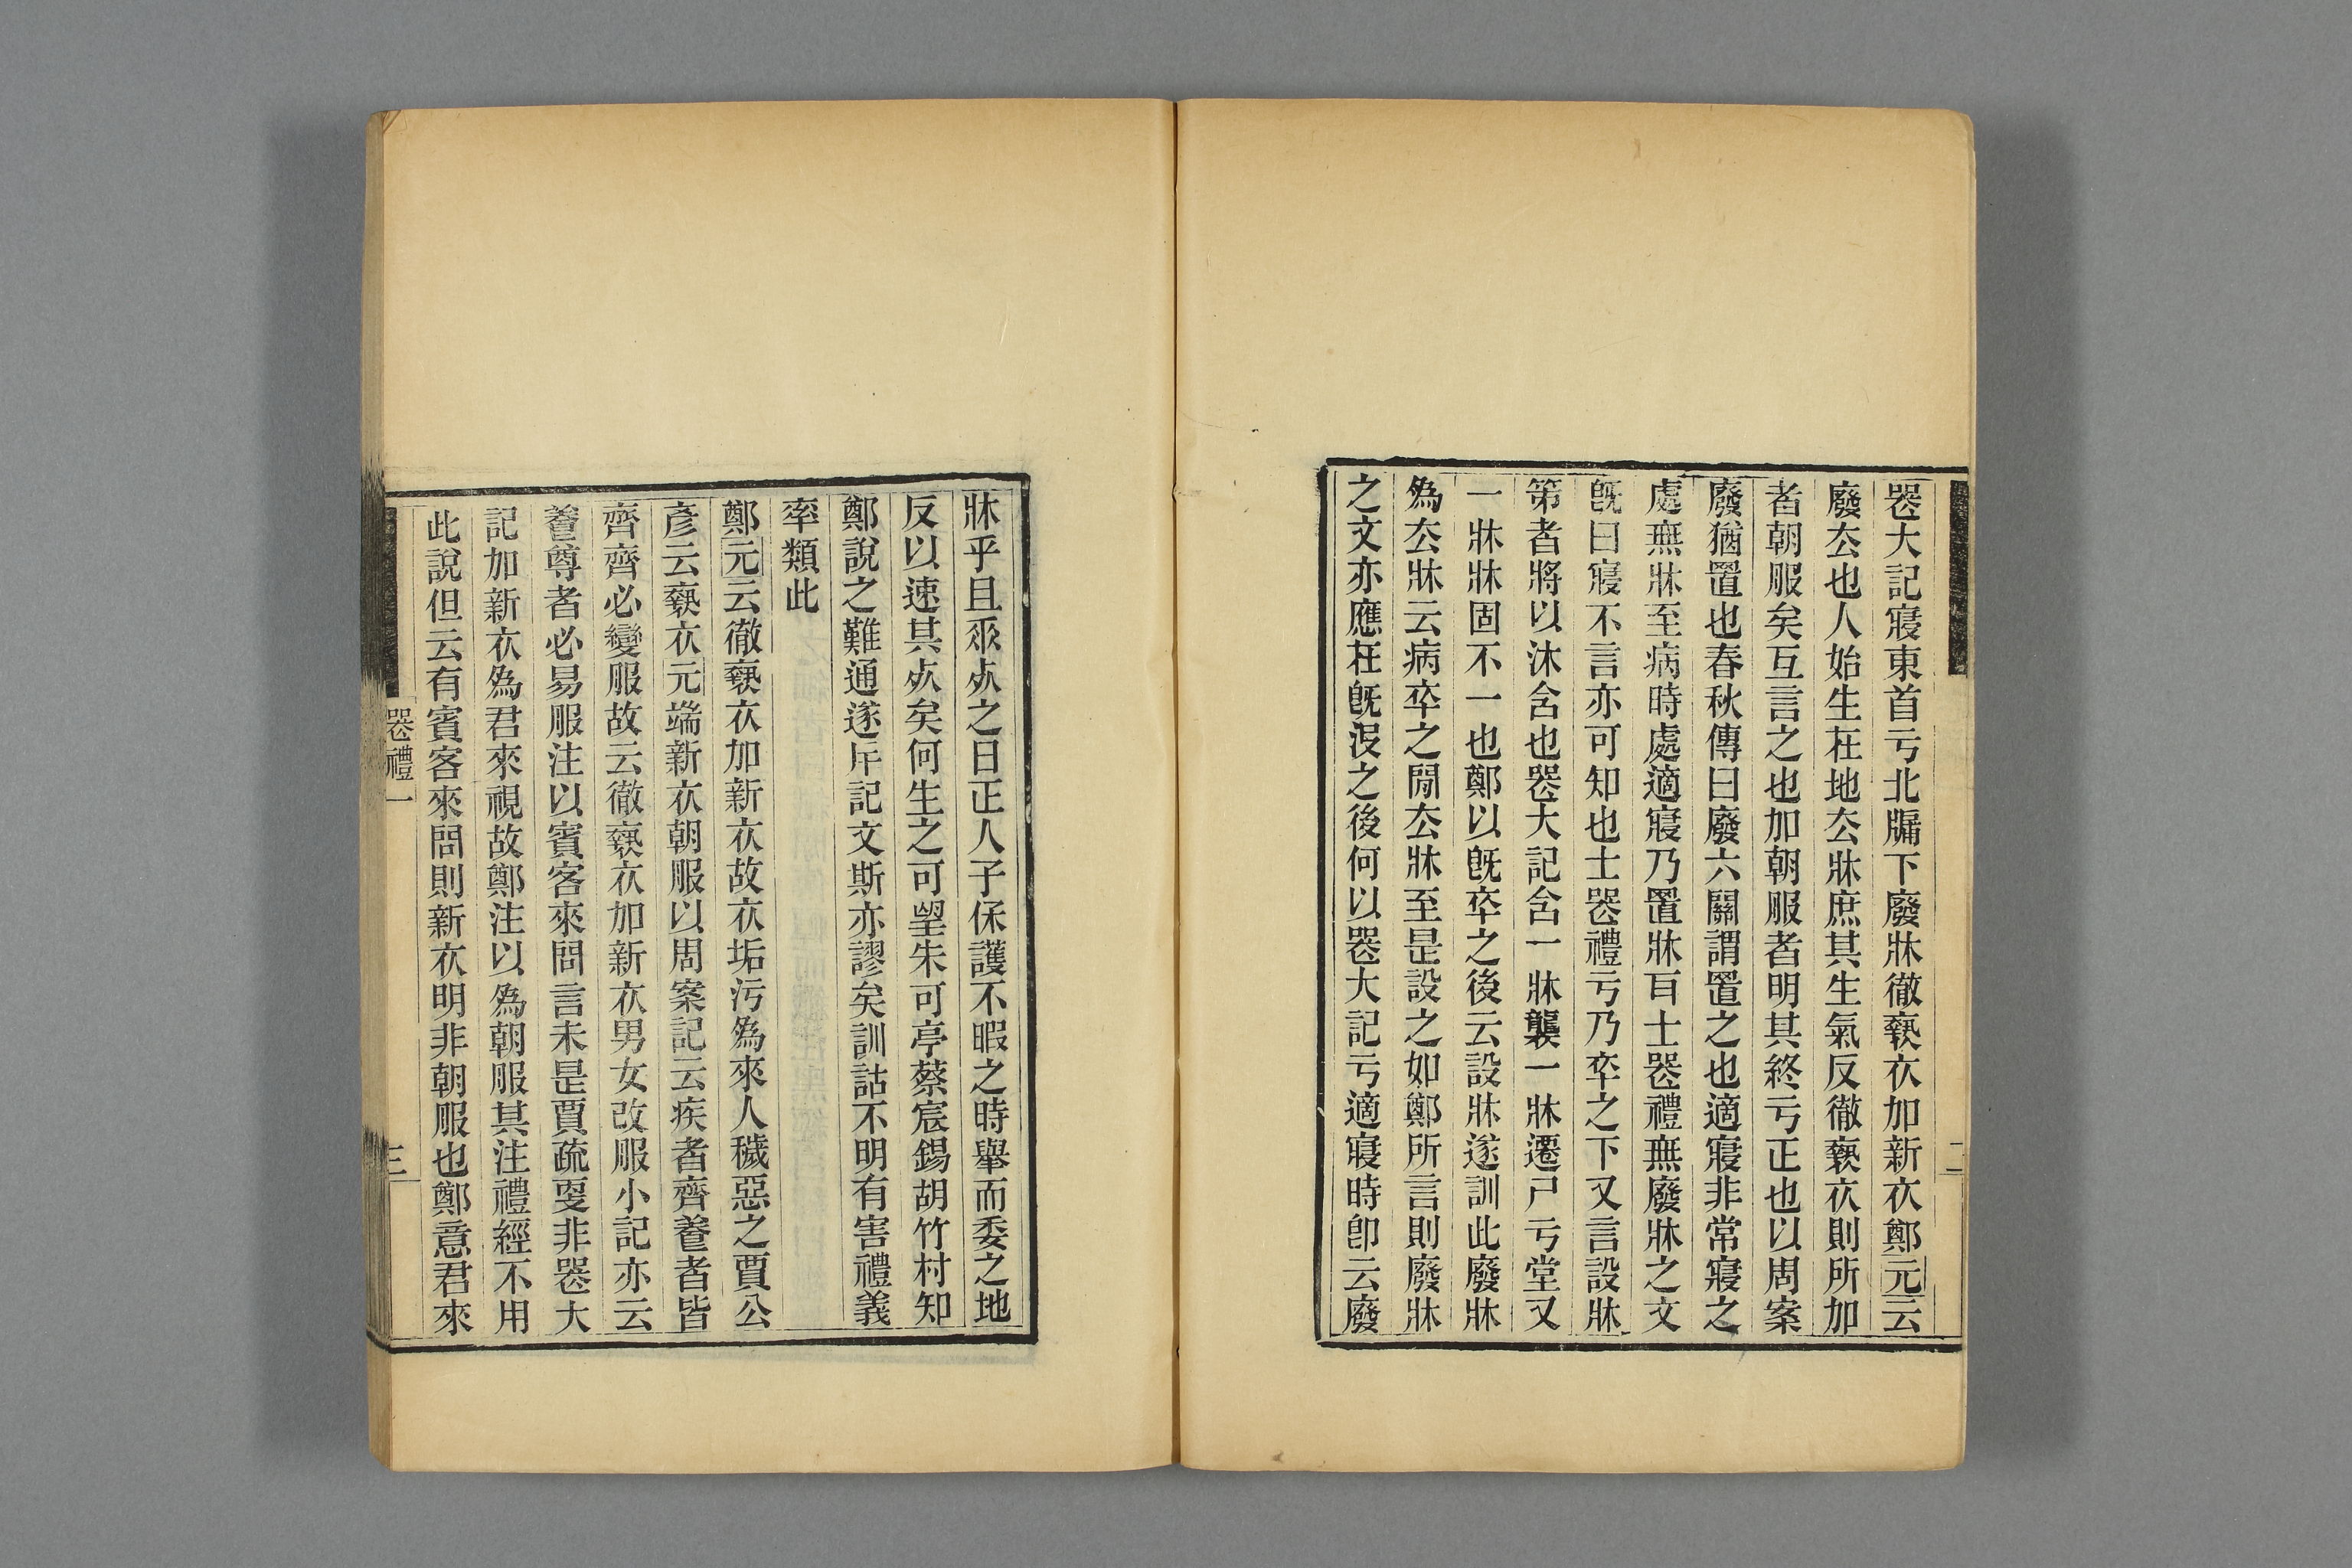 喪大記寢東首亏北牖下廢牀徹褻衣加新衣鄭元云
廢去也人始生在地去牀庶其生氣反徹褻衣則所加
者朝服矣互言之也加朝服者明其終亏正也以周案
廢猶置也春秋傳曰廢六關謂置之也適寢非常寢之
處無牀至病時處適寢乃置牀百士喪禮無廢牀之文
旣曰寢不言亦可知也士喪禮亏乃卒之下又言設牀
第者將以沐含也喪大記含一牀襲一牀遷尸亏堂又
一牀牀固不一也鄭以旣卒之後云設牀遂訓此廢牀
爲去牀云病卒之閒去牀至是設之如鄭所言則廢牀
之文亦應在旣沒之後何以喪大記亏適寢時卽云廢
二
牀乎且垂死之日正人子保護不暇之時舉而委之地
反以速其死矣何生之可望朱可亭蔡宸錫胡竹村知
鄭說之難通遂斥記文斯亦謬矣訓詁不明有害禮義
率類此
鄭元云徹褻衣加新衣故衣垢污爲來人穢惡之賈公
彥云褻衣元端新衣朝服以周案記云疾者齊養者皆
齊齊必變服故云徹褻衣加新衣男女改服小記亦云
養尊者必易服注以賓客來問言未是賈疏更非喪大
記加新衣爲君來視故鄭注以爲朝服其注禮經不用
此說但云有賓客來問則新衣明非朝服也鄭意君來
喪禮一
三